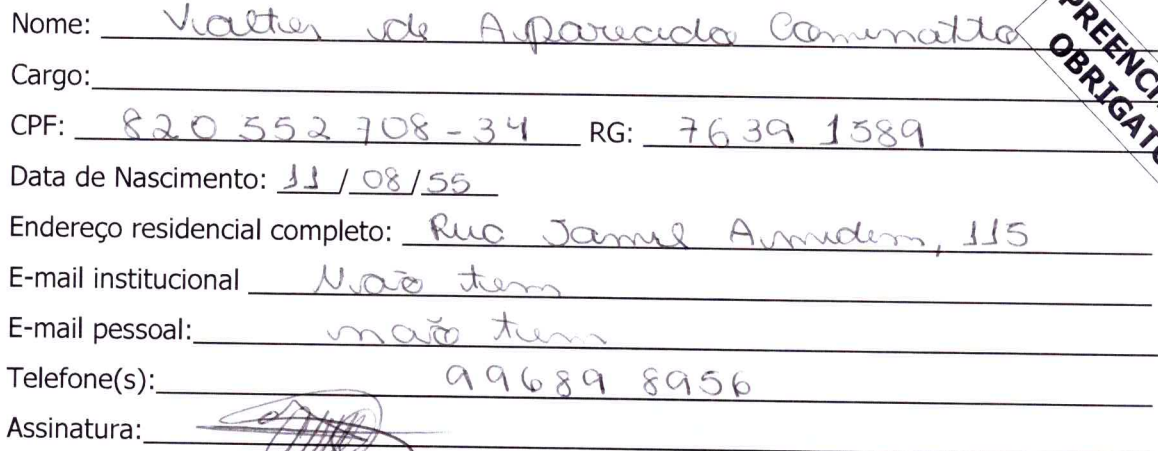 Nome: Valter de Aparecida Caminatto
PREENCH
OBRIGATO
Cargo:
CPF: 820 552 708-34 RG: 7639 1589
Data de Nascimento: 11/08/55
Endereço residencial completo: Rua Jamil 115
E-mail institucional Não tem
E-mail pessoal: não tem
Telefone(s): 99689 8956
Assinatura: